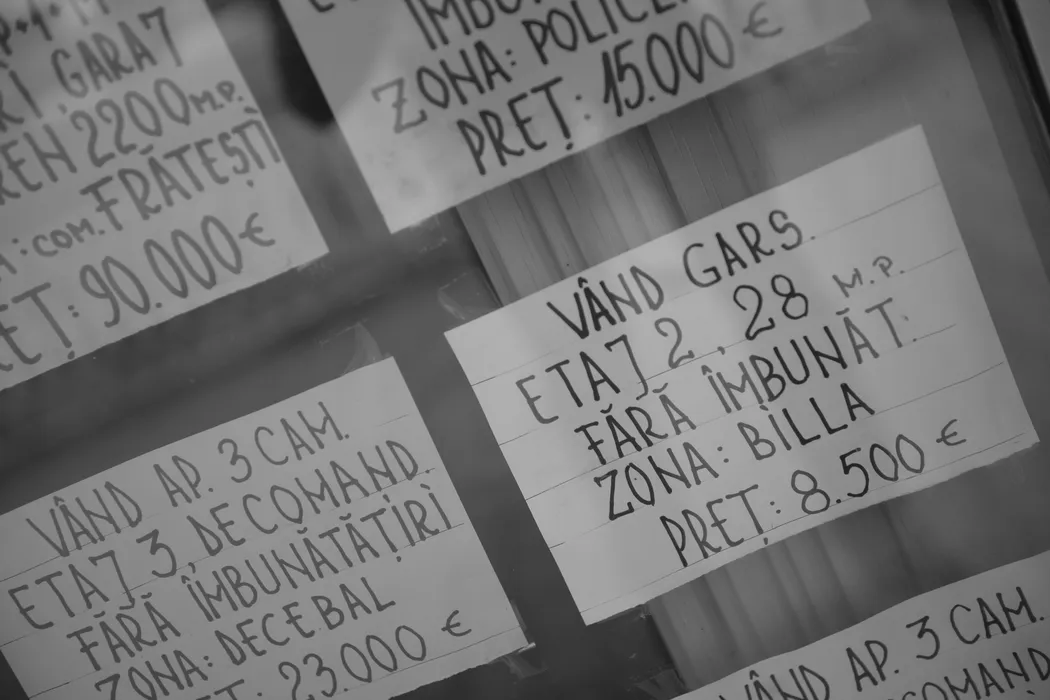 GARAJ
2200 M.P.
COM. FRĂTEȘTI
90.000 €
ZONA:
PREȚ: 15.000 €
VÂND GARS.
ETAJ 2, 28 M.P.
FĂRĂ ÎMBUNĂT.
ZONA: BILLA
PREȚ: 8.500 €
VÂND AP. 3 CAM.
ETAJ 3, DECOMAND.
FĂRĂ ÎMBUNĂTĂȚIRI
ZONA: DECEBAL
23.000 €
VÂND AP. 3 CAM.